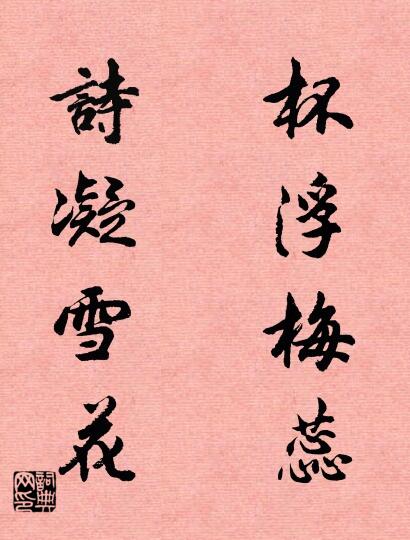 杯浮梅蕊
詩凝雪花
詞典网印